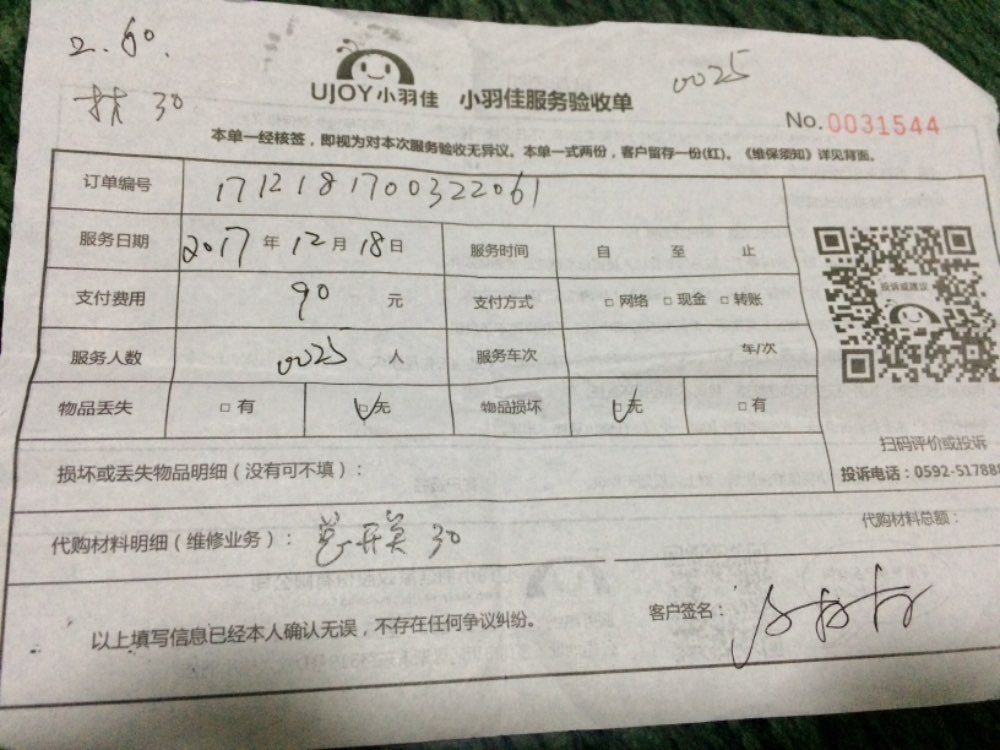 2.60.
30
0025
UJOY小羽佳 小羽佳服务验收单
No.0031544
本单一经核签，即视为对本次服务验收无异议。本单一式两份，客户留存一份(红)。《维保须知》详见背面。
订单编号 1712181700322061
服务日期 2017年12月18日 服务时间 自 至 止
支付费用 90 元 支付方式 □网络 □现金 □转账
服务人数 0025 人 服务车次 年/次
投诉或建议
物品丢失 □有 □无 物品损坏 □无 □有
扫码评价或投诉
投诉电话：0592-517888
损坏或丢失物品明细（没有可不填）：
代购材料明细（维修业务）： 总开关 30
代购材料总额：
以上填写信息已经本人确认无误，不存在任何争议纠纷。
客户签名：